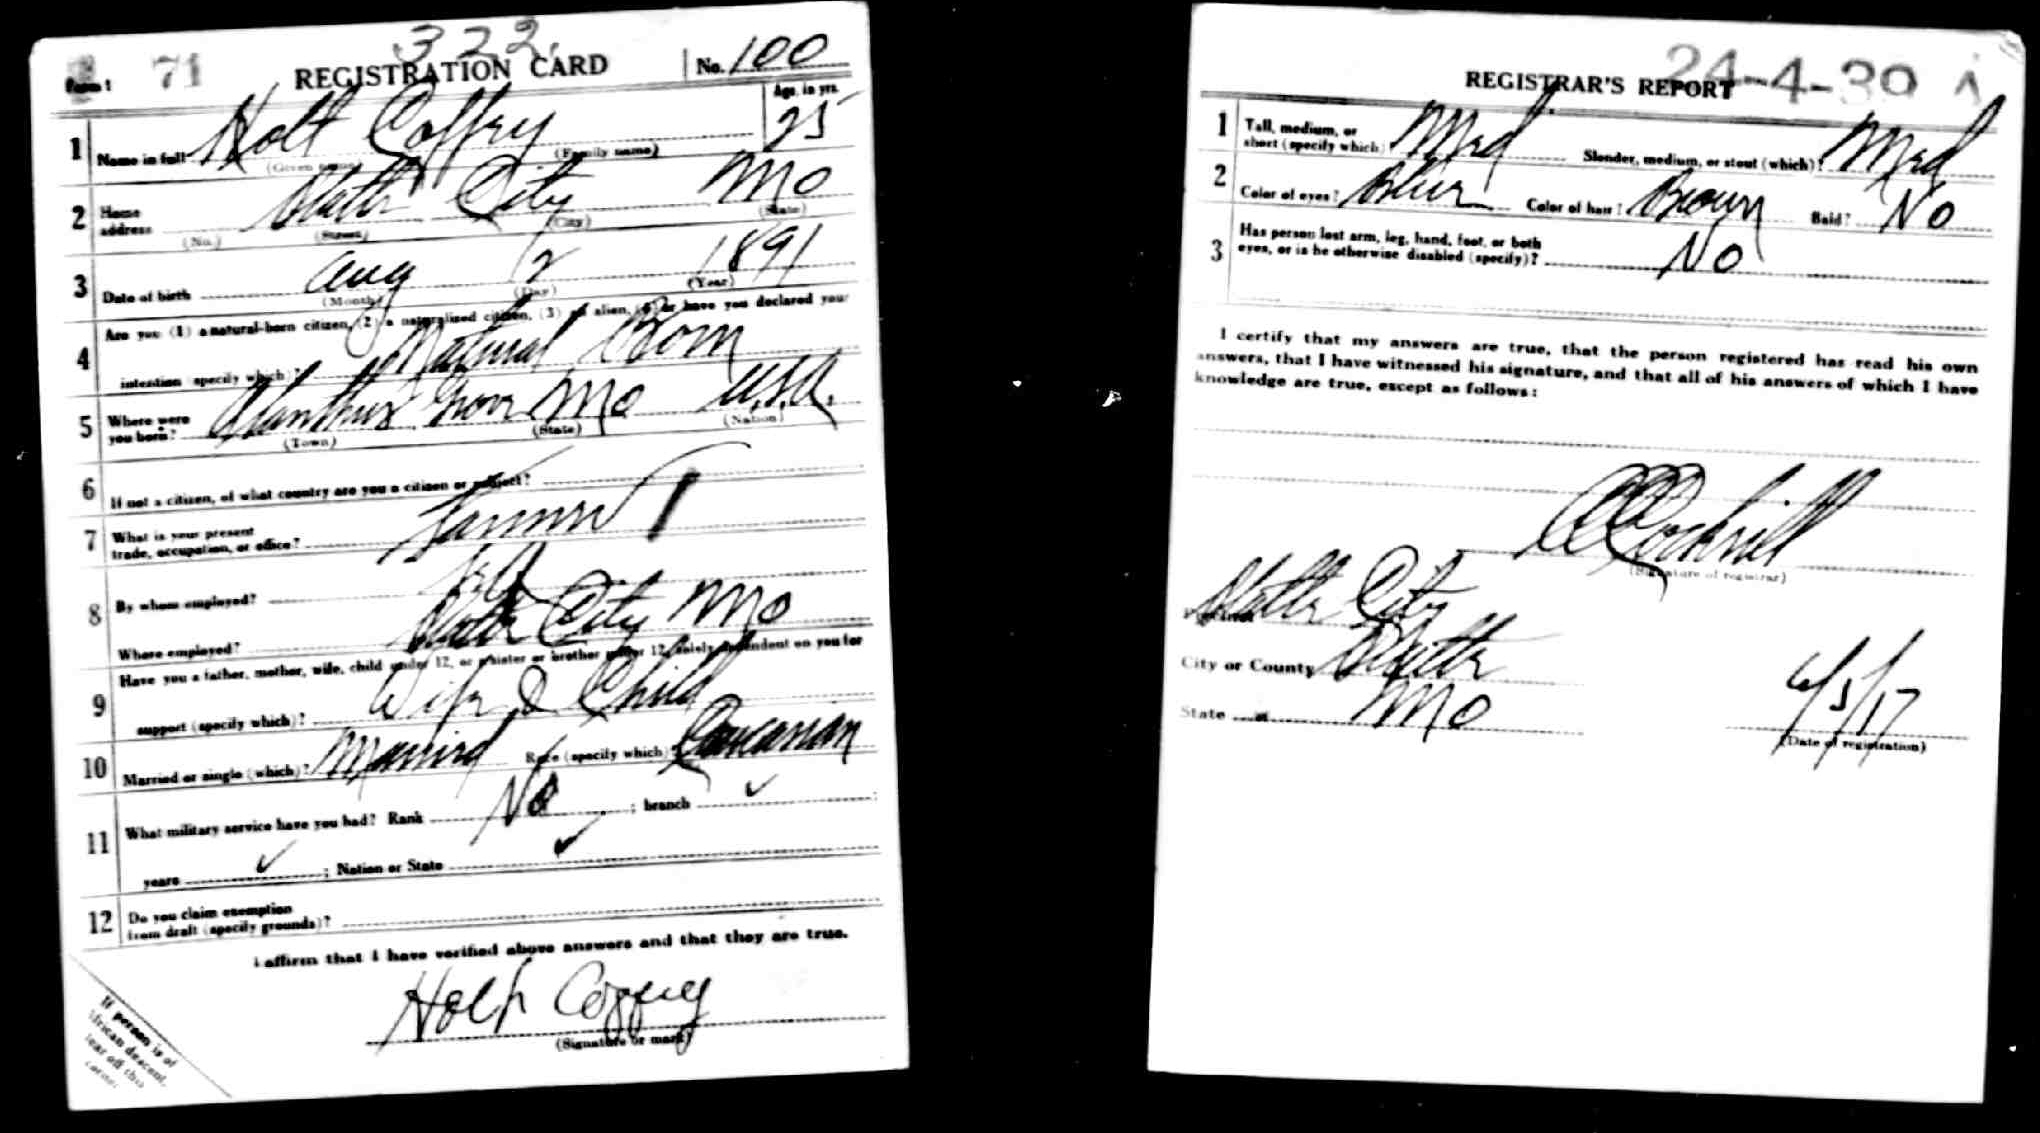 322.
Form 1 71 REGISTRATION CARD No. 100
Age, in yrs.
1 Name in full Holt Coffey 25
(Given name) (Family name)
2 Home address Platte City Mo
(No.) (Street) (City) (State)
3 Date of birth Aug 2 1891
(Month) (Day) (Year)
4 Are you (1) a natural-born citizen, (2) a naturalized citizen, (3) an alien, (4) or have you declared your
intention (specify which)? Natural Born
5 Where were you born? Alanthus Grove Mo U.S.A.
(Town) (State) (Nation)
6 If not a citizen, of what country are you a citizen or subject?
7 What is your present
trade, occupation, or office? Farmer
8 By whom employed? Self
Where employed? Platte City Mo
9 Have you a father, mother, wife, child under 12, or a sister or brother under 12, solely dependent on you for
support (specify which)? Wife & Child
10 Married or single (which)? Married Race (specify which)? Caucasian
11 What military service have you had? Rank No ; branch ✓
years ✓ ; Nation or State ✓
12 Do you claim exemption
from draft (specify grounds)?
I affirm that I have verified above answers and that they are true.
Holt Coffey
(Signature or mark)
If person is of
African descent,
tear off this
corner.
24-4-39 A
REGISTRAR'S REPORT
1 Tall, medium, or
short (specify which)? Med Slender, medium, or stout (which)? Med
2 Color of eyes? Blue Color of hair? Brown Bald? No
3 Has person lost arm, leg, hand, foot, or both
eyes, or is he otherwise disabled (specify)? No
I certify that my answers are true, that the person registered has read his own
answers, that I have witnessed his signature, and that all of his answers of which I have
knowledge are true, except as follows:
Cockrill
(Signature of registrar)
Precinct Platte City
City or County Platte
State Mo 6/5/17
(Date of registration)